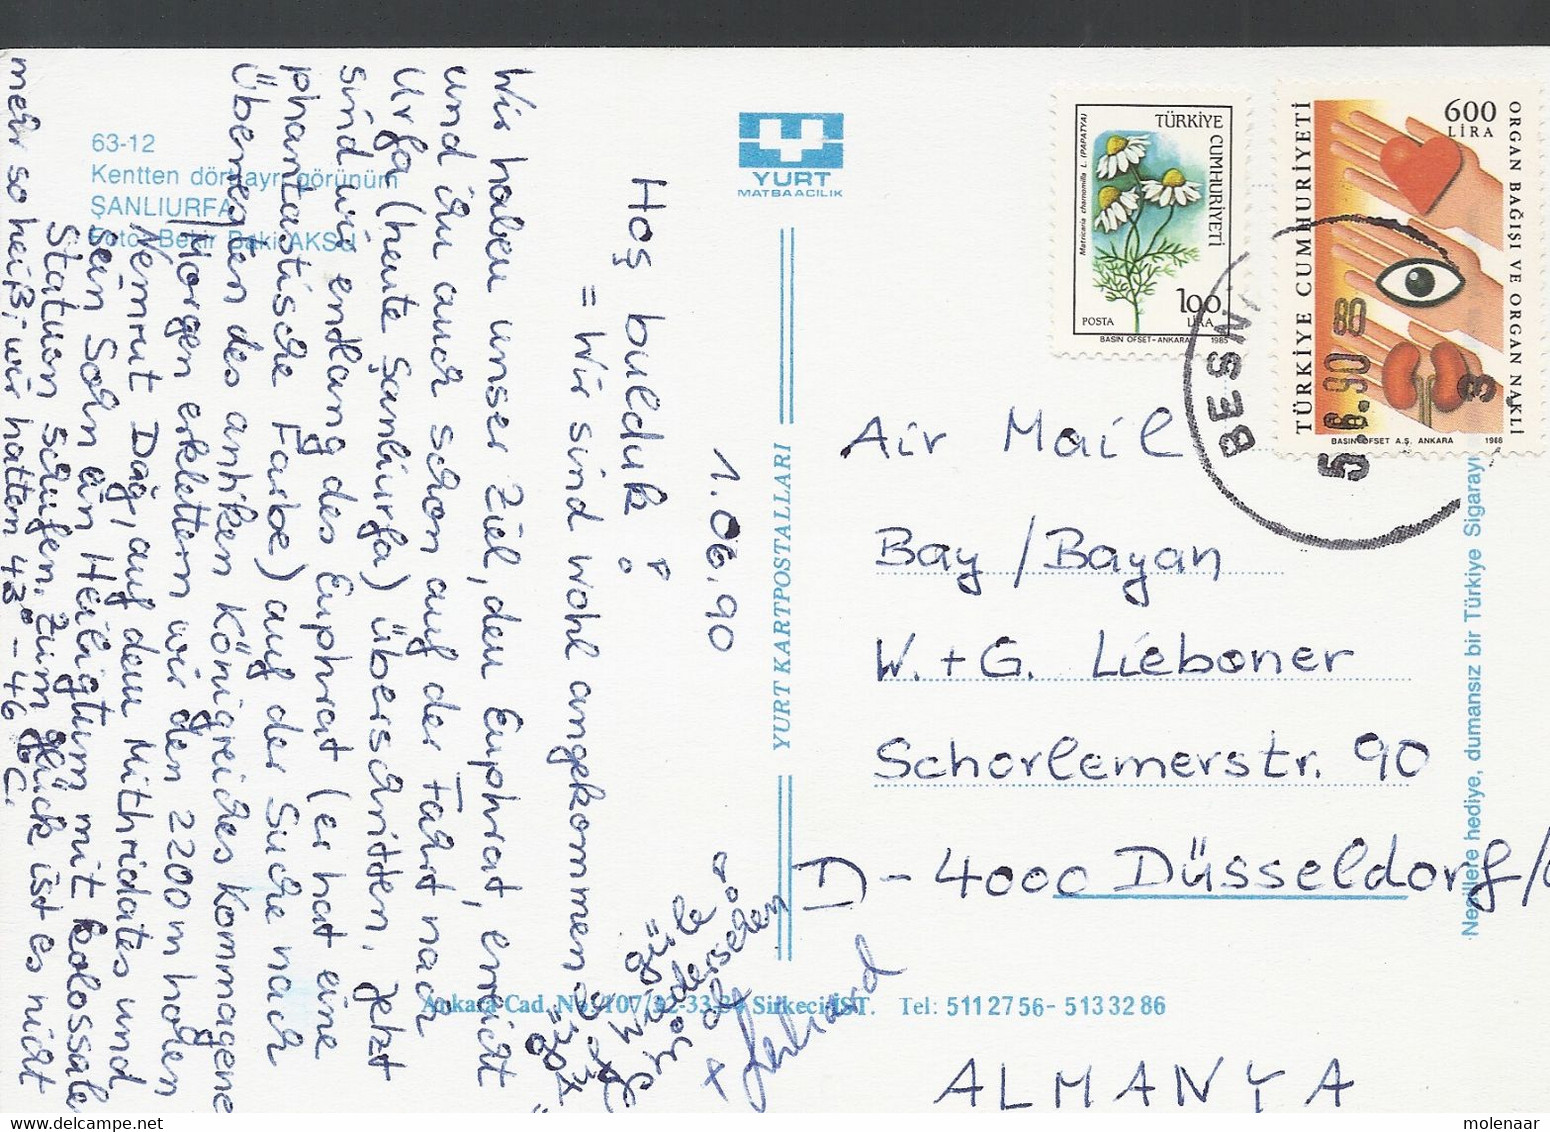 63-12
Kentten dört ayrı görünüm
ŞANLIURFA
Foto: Bekir Baki AKSU
YURT
MATBAACILIK
YURT KARTPOSTALLARI
Ankara Cad. No: 107/32-33-34 Sirkeci-İST. Tel: 511 27 56 - 513 32 86
1.06.90
Hoş bulduk!
= Wir sind wohl angekommen
Wir haben unser Ziel, den Euphrat, erreicht
und ihn auch schon auf der Fahrt nach
Urfa (heute Şanlıurfa) überschritten. Jetzt
sind wir endlang des Euphrat (er hat eine
phantastische Farbe) auf der Suche nach
Überresten des antiken Königreiches Kommagene
(Morgen erklettern wir den 2200m hohen
Nemrut Dağı, auf dem Mithridates und
sein Sohn ein Heiligtum mit kolossalen
Statuen schufen. Zum Glück ist es nicht
mehr so heiß, wir hatten 43° - 46°C.
güle
Wiedersehen
+ Gerhard
TÜRKİYE CUMHURİYETİ
Matricaria chamomilla L. (PAPATYA)
100
LİRA
POSTA
BASIN OFSET - ANKARA 1985
600
LİRA
TÜRKİYE CUMHURİYETİ
ORGAN BAĞIŞI VE ORGAN NAKLİ
BASIN OFSET A.Ş. ANKARA 1988
BESNİ
80
5.6.90
3
Air Mail
Bay / Bayan
W. + G. Lieboner
Schorlemerstr. 90
D - 4000 Düsseldorf/
ALMANYA
Nesillere hediye, dumansız bir Türkiye Sigarayı
molenaar